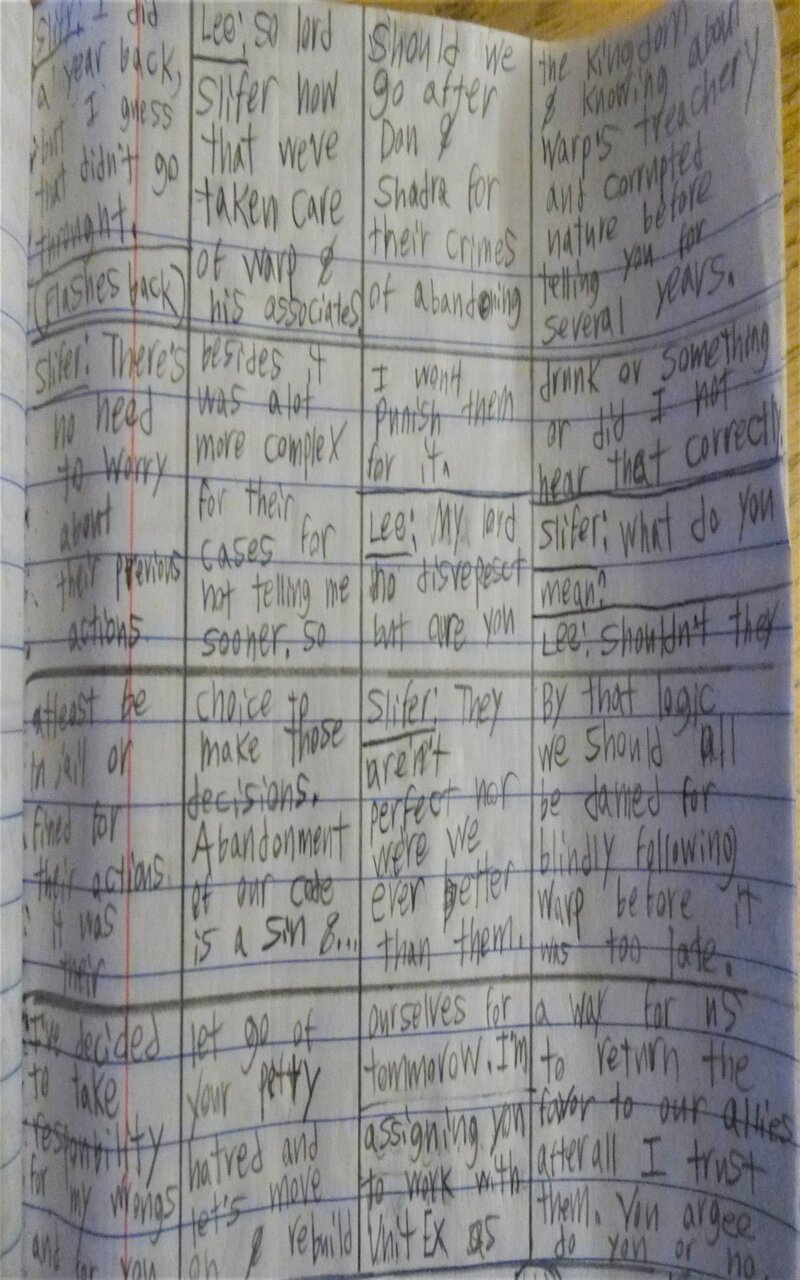 Slifer: I did
a year back,
but I guess
that didn't go
throught.
(Flashes back)
Lee: so lord
Slifer now
that we've
taken care
of warp &
his associates
Should we
go after
Dan &
Shadra for
their crimes
of abandoning
the kingdom about
& knowing about
warp's treachery
and corrupted
nature before
telling you for
several years.
Slifer: There's
no need
to worry
about
their previous
actions
besides it
was alot
more complex
for their
cases for
not telling me
sooner. so
I wont
punish them
for it.
Lee: My lord
no disrepesct
but are you
drunk or something
or did I not
hear that correctly.
Slifer: What do you
mean?
Lee: Shouldn't they
atleast be
in jail or
fined for
their actions.
it was
their
choice to
make those
decisions.
Abandonment
of our code
is a sin &...
Slifer: They
aren't
perfect nor
were we
ever better
than them.
By that logic
we should all
be damed for
blindly following
Warp before it
was too late.
I've decided
to take
responbility
for my wrongs
and for you
let go of
your petty
hatred and
let's move
on & rebuild
ourselves for
tommorow. I'm
assigning you
to work with
Unit Ex as
a way for us
to return the
favor to our allies
after all I trust
them. You argee
do you or no